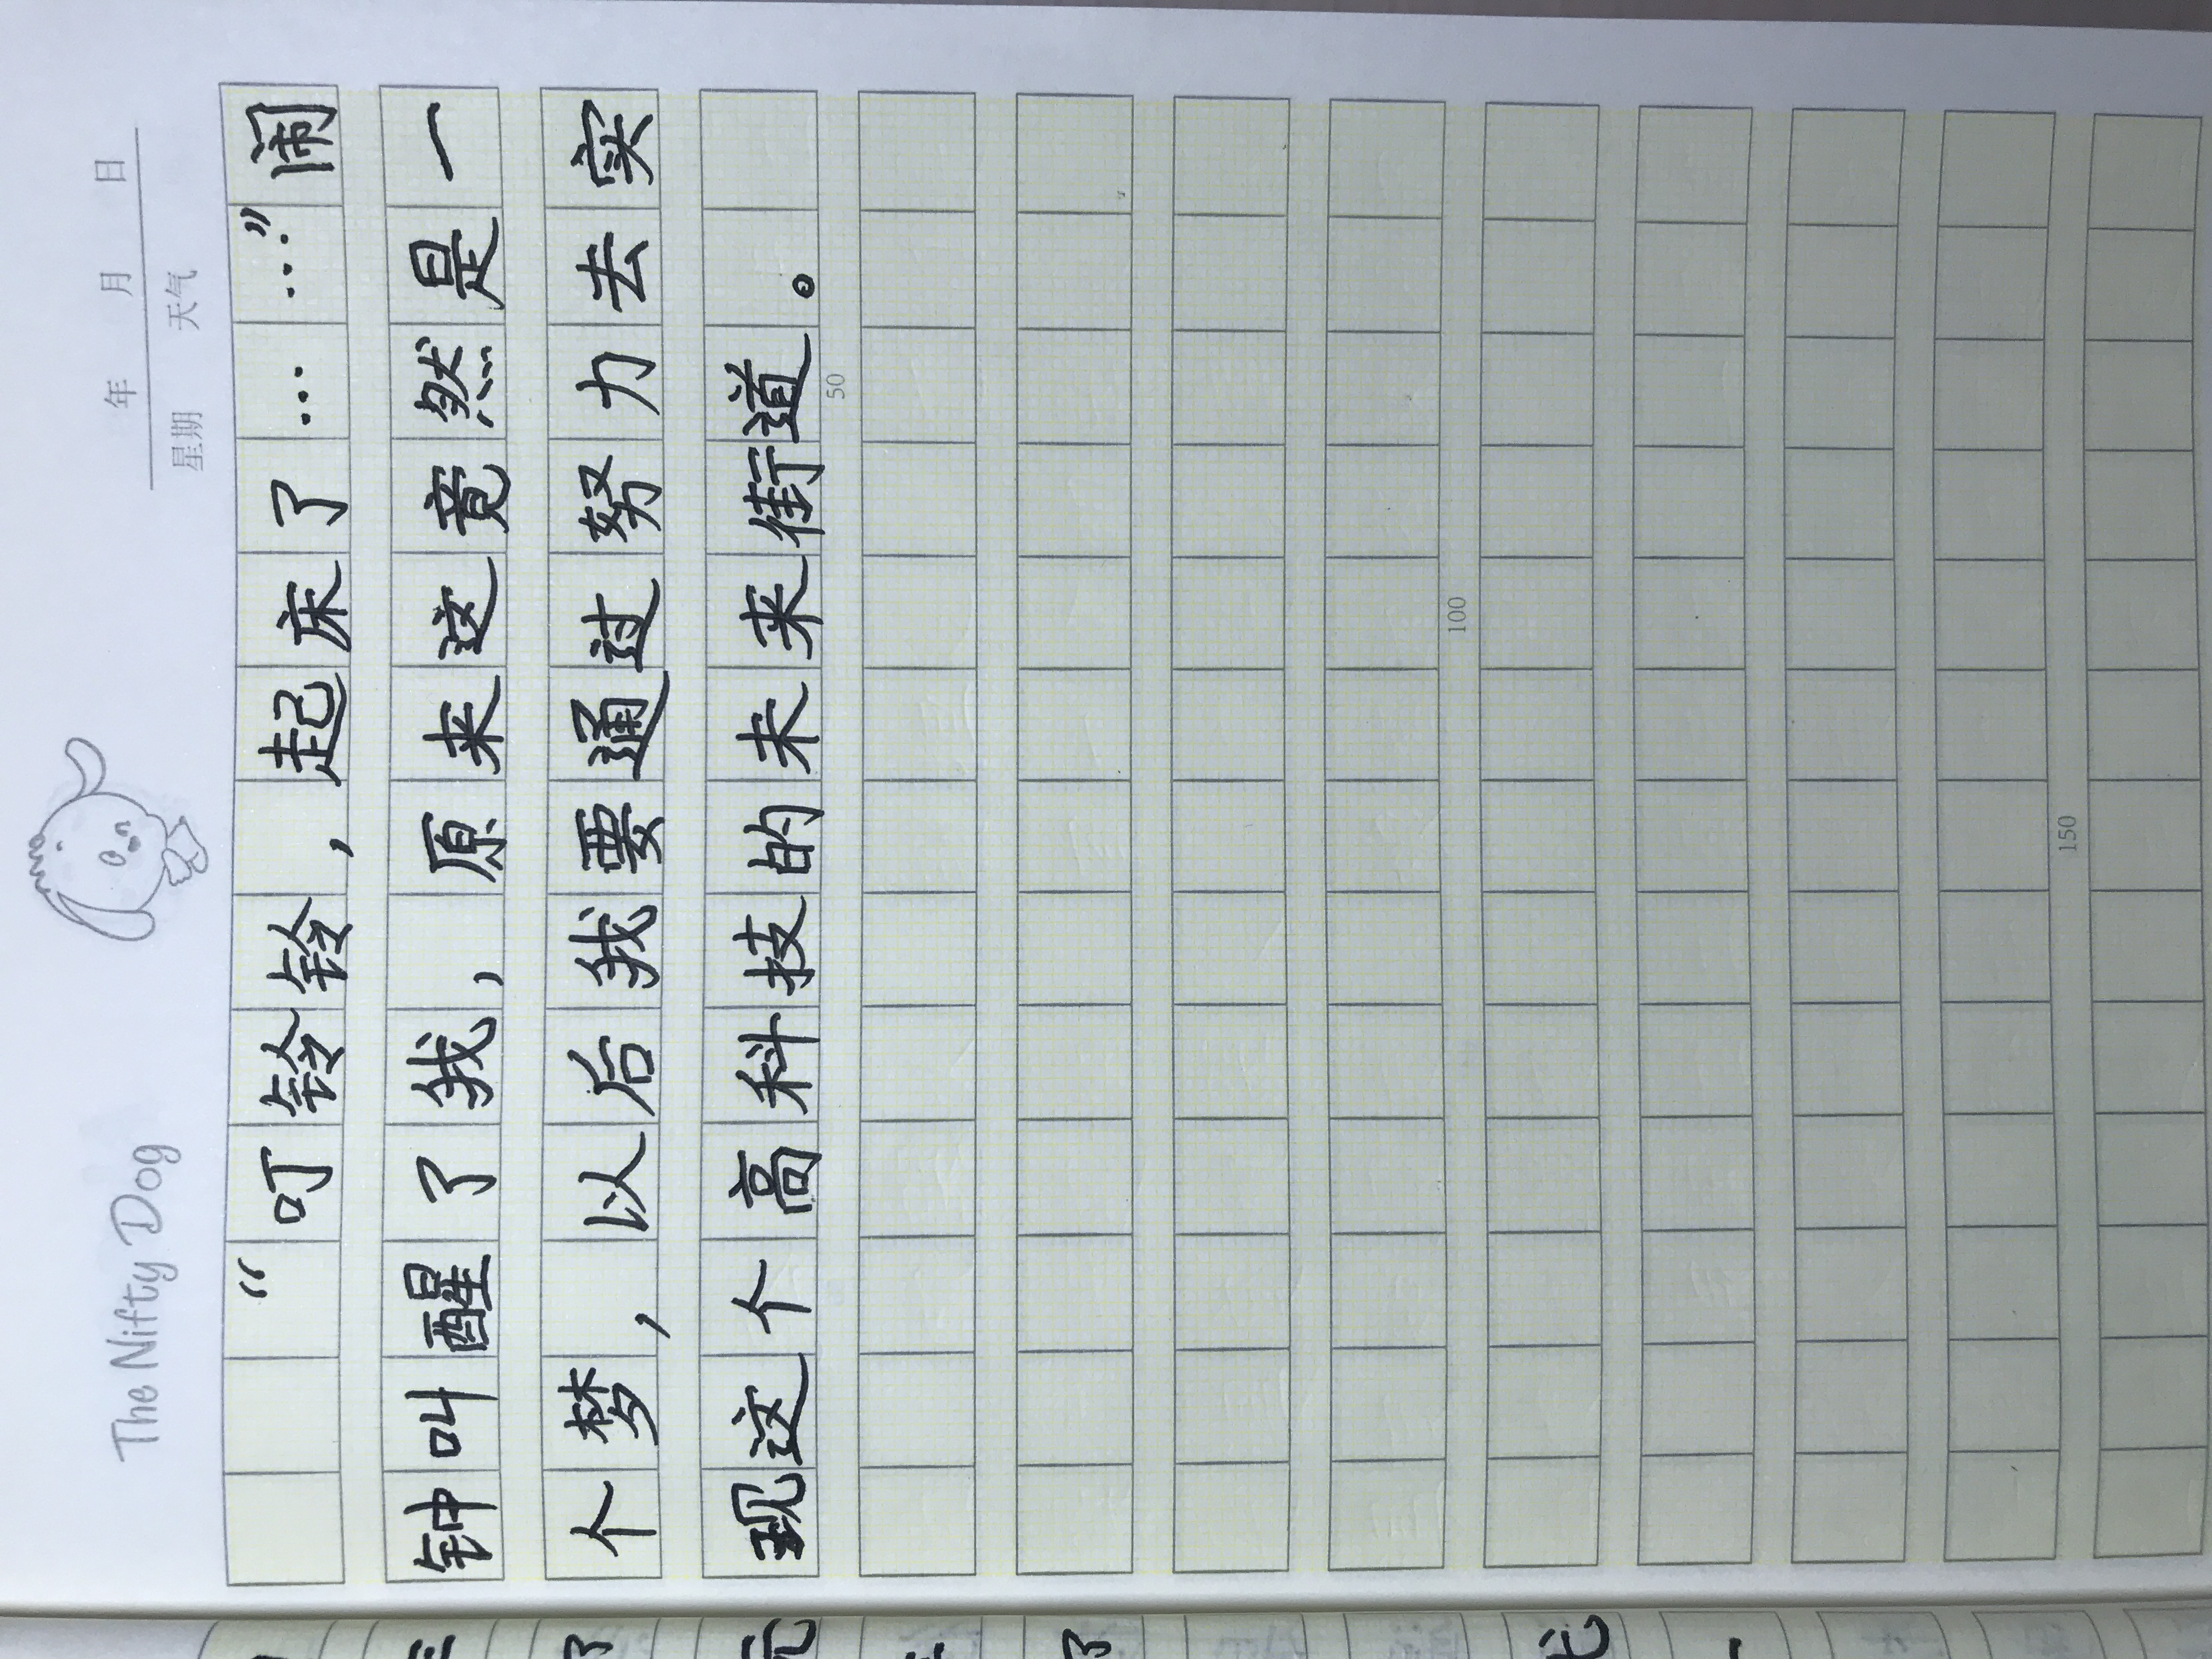 The Nifty Dog
年 月 日
星期 天气
“叮铃铃,起床了……”闹
钟叫醒了我,原来这竟然是一
个梦,以后我要通过努力去实
现这个高科技的未来街道。
50
100
150